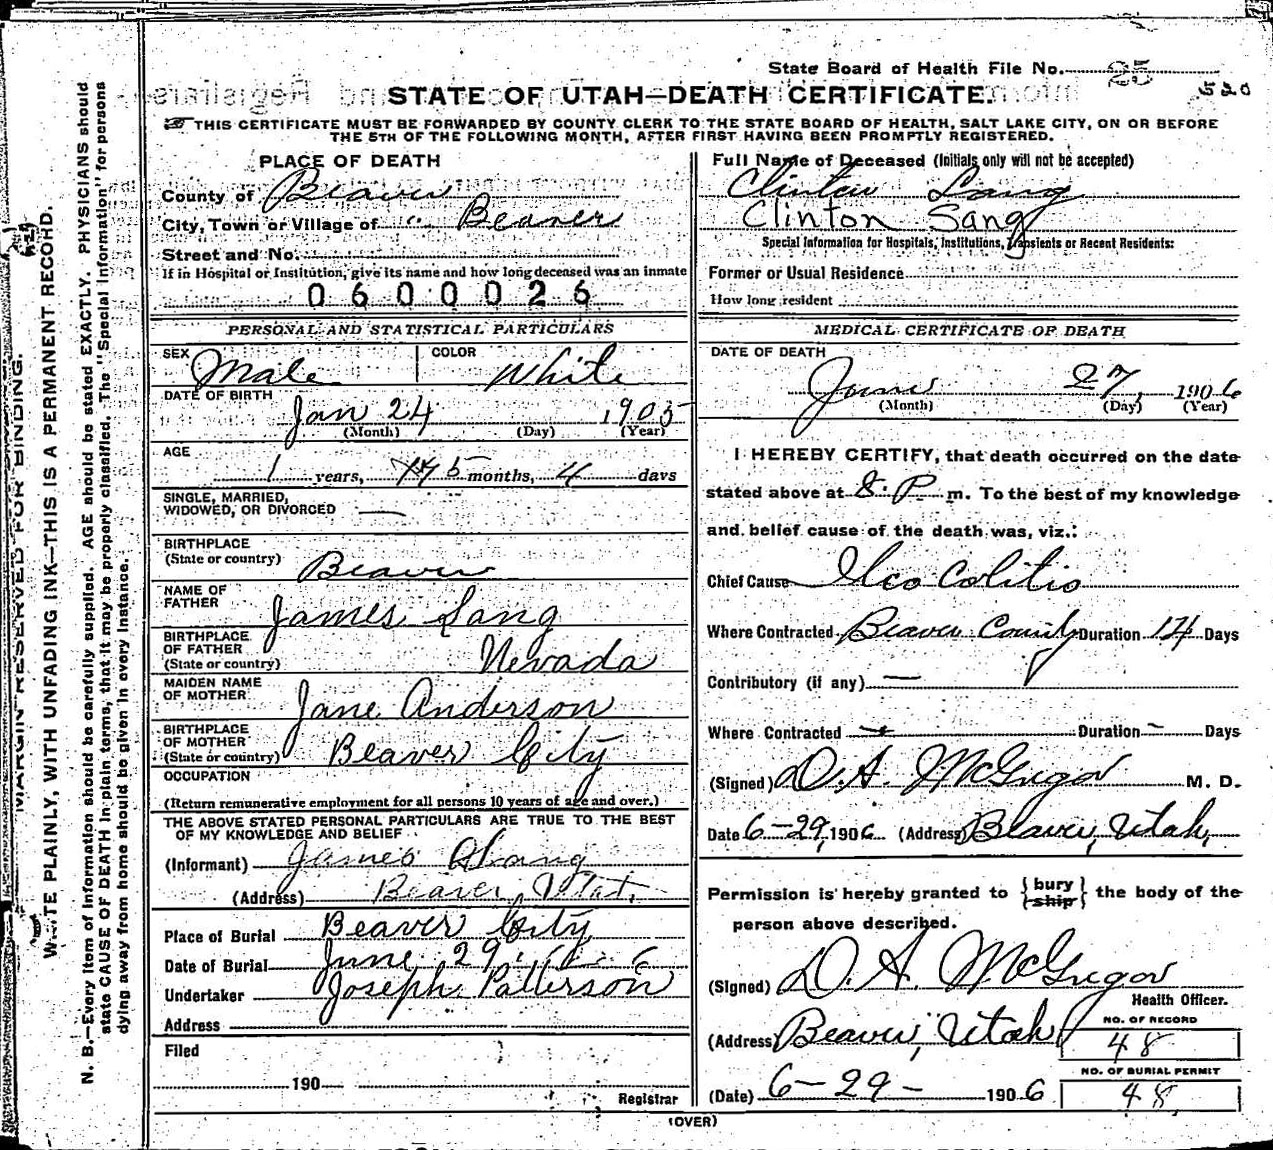 State Board of Health File No. 25
520
STATE OF UTAH—DEATH CERTIFICATE.
THIS CERTIFICATE MUST BE FORWARDED BY COUNTY CLERK TO THE STATE BOARD OF HEALTH, SALT LAKE CITY, ON OR BEFORE
THE 5TH OF THE FOLLOWING MONTH, AFTER FIRST HAVING BEEN PROMPTLY REGISTERED.
MARGIN RESERVED FOR BINDING.
WRITE PLAINLY, WITH UNFADING INK—THIS IS A PERMANENT RECORD.
N. B.—Every item of information should be carefully supplied. AGE should be stated EXACTLY. PHYSICIANS should
state CAUSE OF DEATH in plain terms, that it may be properly classified. The "Special Information" for persons
dying away from home should be given in every instance.
PLACE OF DEATH
County of Beaver
City, Town or Village of " Beaver
Street and No.
If in Hospital or Institution, give its name and how long deceased was an inmate
0600026
PERSONAL AND STATISTICAL PARTICULARS
SEX Male COLOR White
DATE OF BIRTH
Jan 24 1905
(Month) (Day) (Year)
AGE
1 years, 5 months, 4 days
SINGLE, MARRIED,
WIDOWED, OR DIVORCED —
BIRTHPLACE
(State or country) Beaver
NAME OF
FATHER James Sang
BIRTHPLACE
OF FATHER
(State or country) Nevada
MAIDEN NAME
OF MOTHER Jane Anderson
BIRTHPLACE
OF MOTHER
(State or country) Beaver City
OCCUPATION
(Return remunerative employment for all persons 10 years of age and over.)
THE ABOVE STATED PERSONAL PARTICULARS ARE TRUE TO THE BEST
OF MY KNOWLEDGE AND BELIEF
(Informant) James
(Address) Beaver, Utah,
Place of Burial Beaver City
Date of Burial June 29, 6
Undertaker Joseph Patterson
Address
Filed
190
Registrar
Full Name of Deceased (Initials only will not be accepted)
Clinton Sang
Clinton Sang
Special Information for Hospitals, Institutions, Transients or Recent Residents:
Former or Usual Residence
How long resident
MEDICAL CERTIFICATE OF DEATH
DATE OF DEATH
June 27, 1906
(Month) (Day) (Year)
I HEREBY CERTIFY, that death occurred on the date
stated above at 8. P. m. To the best of my knowledge
and belief cause of the death was, viz.:
Chief Cause Ileo Colitis
Where Contracted Beaver County Duration 14 Days
Contributory (if any) —
Where Contracted — Duration — Days
(Signed) D. A. McGregor M. D.
Date 6-29, 1906 (Address) Beaver, Utah,
Permission is hereby granted to { bury ship } the body of the
person above described.
(Signed) D. A. McGregor
Health Officer.
(Address) Beaver, Utah
NO. OF RECORD
48
NO. OF BURIAL PERMIT
48
(Date) 6-29- 1906
(OVER)